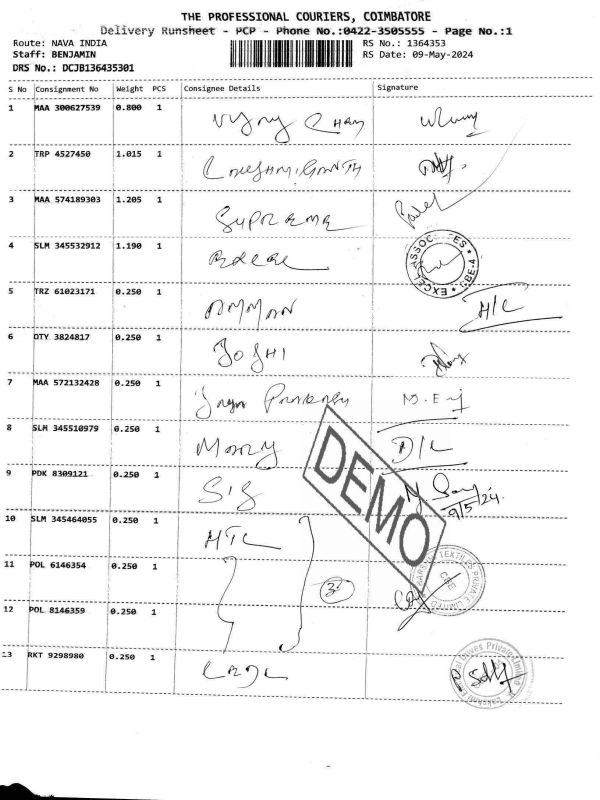 THE PROFESSIONAL COURIERS, COIMBATORE
Delivery Runsheet - PCP - Phone No.:0422-3505555 - Page No.:1
Route: NAVA INDIA
Staff: BENJAMIN
DRS No.: DCJB136435301
RS No.: 1364353
RS Date: 09-May-2024
S No Consignment No Weight PCS Consignee Details Signature
1 MAA 300627539 0.800 1
2 TRP 4527450 1.015 1
3 MAA 574189303 1.205 1 SUPREME
4 SLM 345532912 1.190 1
EXCEL ASSOCIATES CBE-4
5 TRZ 61023171 0.250 1 AMMAN
6 OTY 3824817 0.250 1 JOSHI
7 MAA 572132428 0.250 1
8 SLM 345510979 0.250 1 D/L
9 PDK 8309121 0.250 1 SIS
9/5/24
DEMO
10 SLM 345464055 0.250 1 HTL
11 POL 6146354 0.250 1
12 POL 8146359 0.250 1
TEXTILES PRIVATE LIMITED CBE
13 RKT 9298980 0.250 1